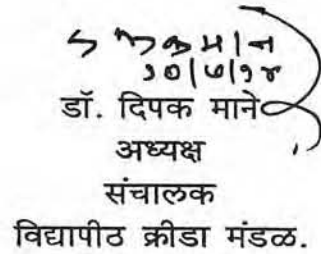 १०/७/१४
डॉ. दिपक माने
अध्यक्ष
संचालक
विद्यापीठ क्रीडा मंडळ.